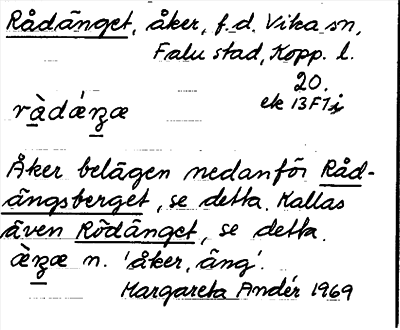 Rådänget, åker, f.d. Vika sn,
Falu stad, Kopp. l.
20.
ek 13F1i
Åker belägen nedanför Råd-
ängsberget, se detta. Kallas
även Rödänget, se detta.
n. 'åker, äng'.
Margareta Andér 1969